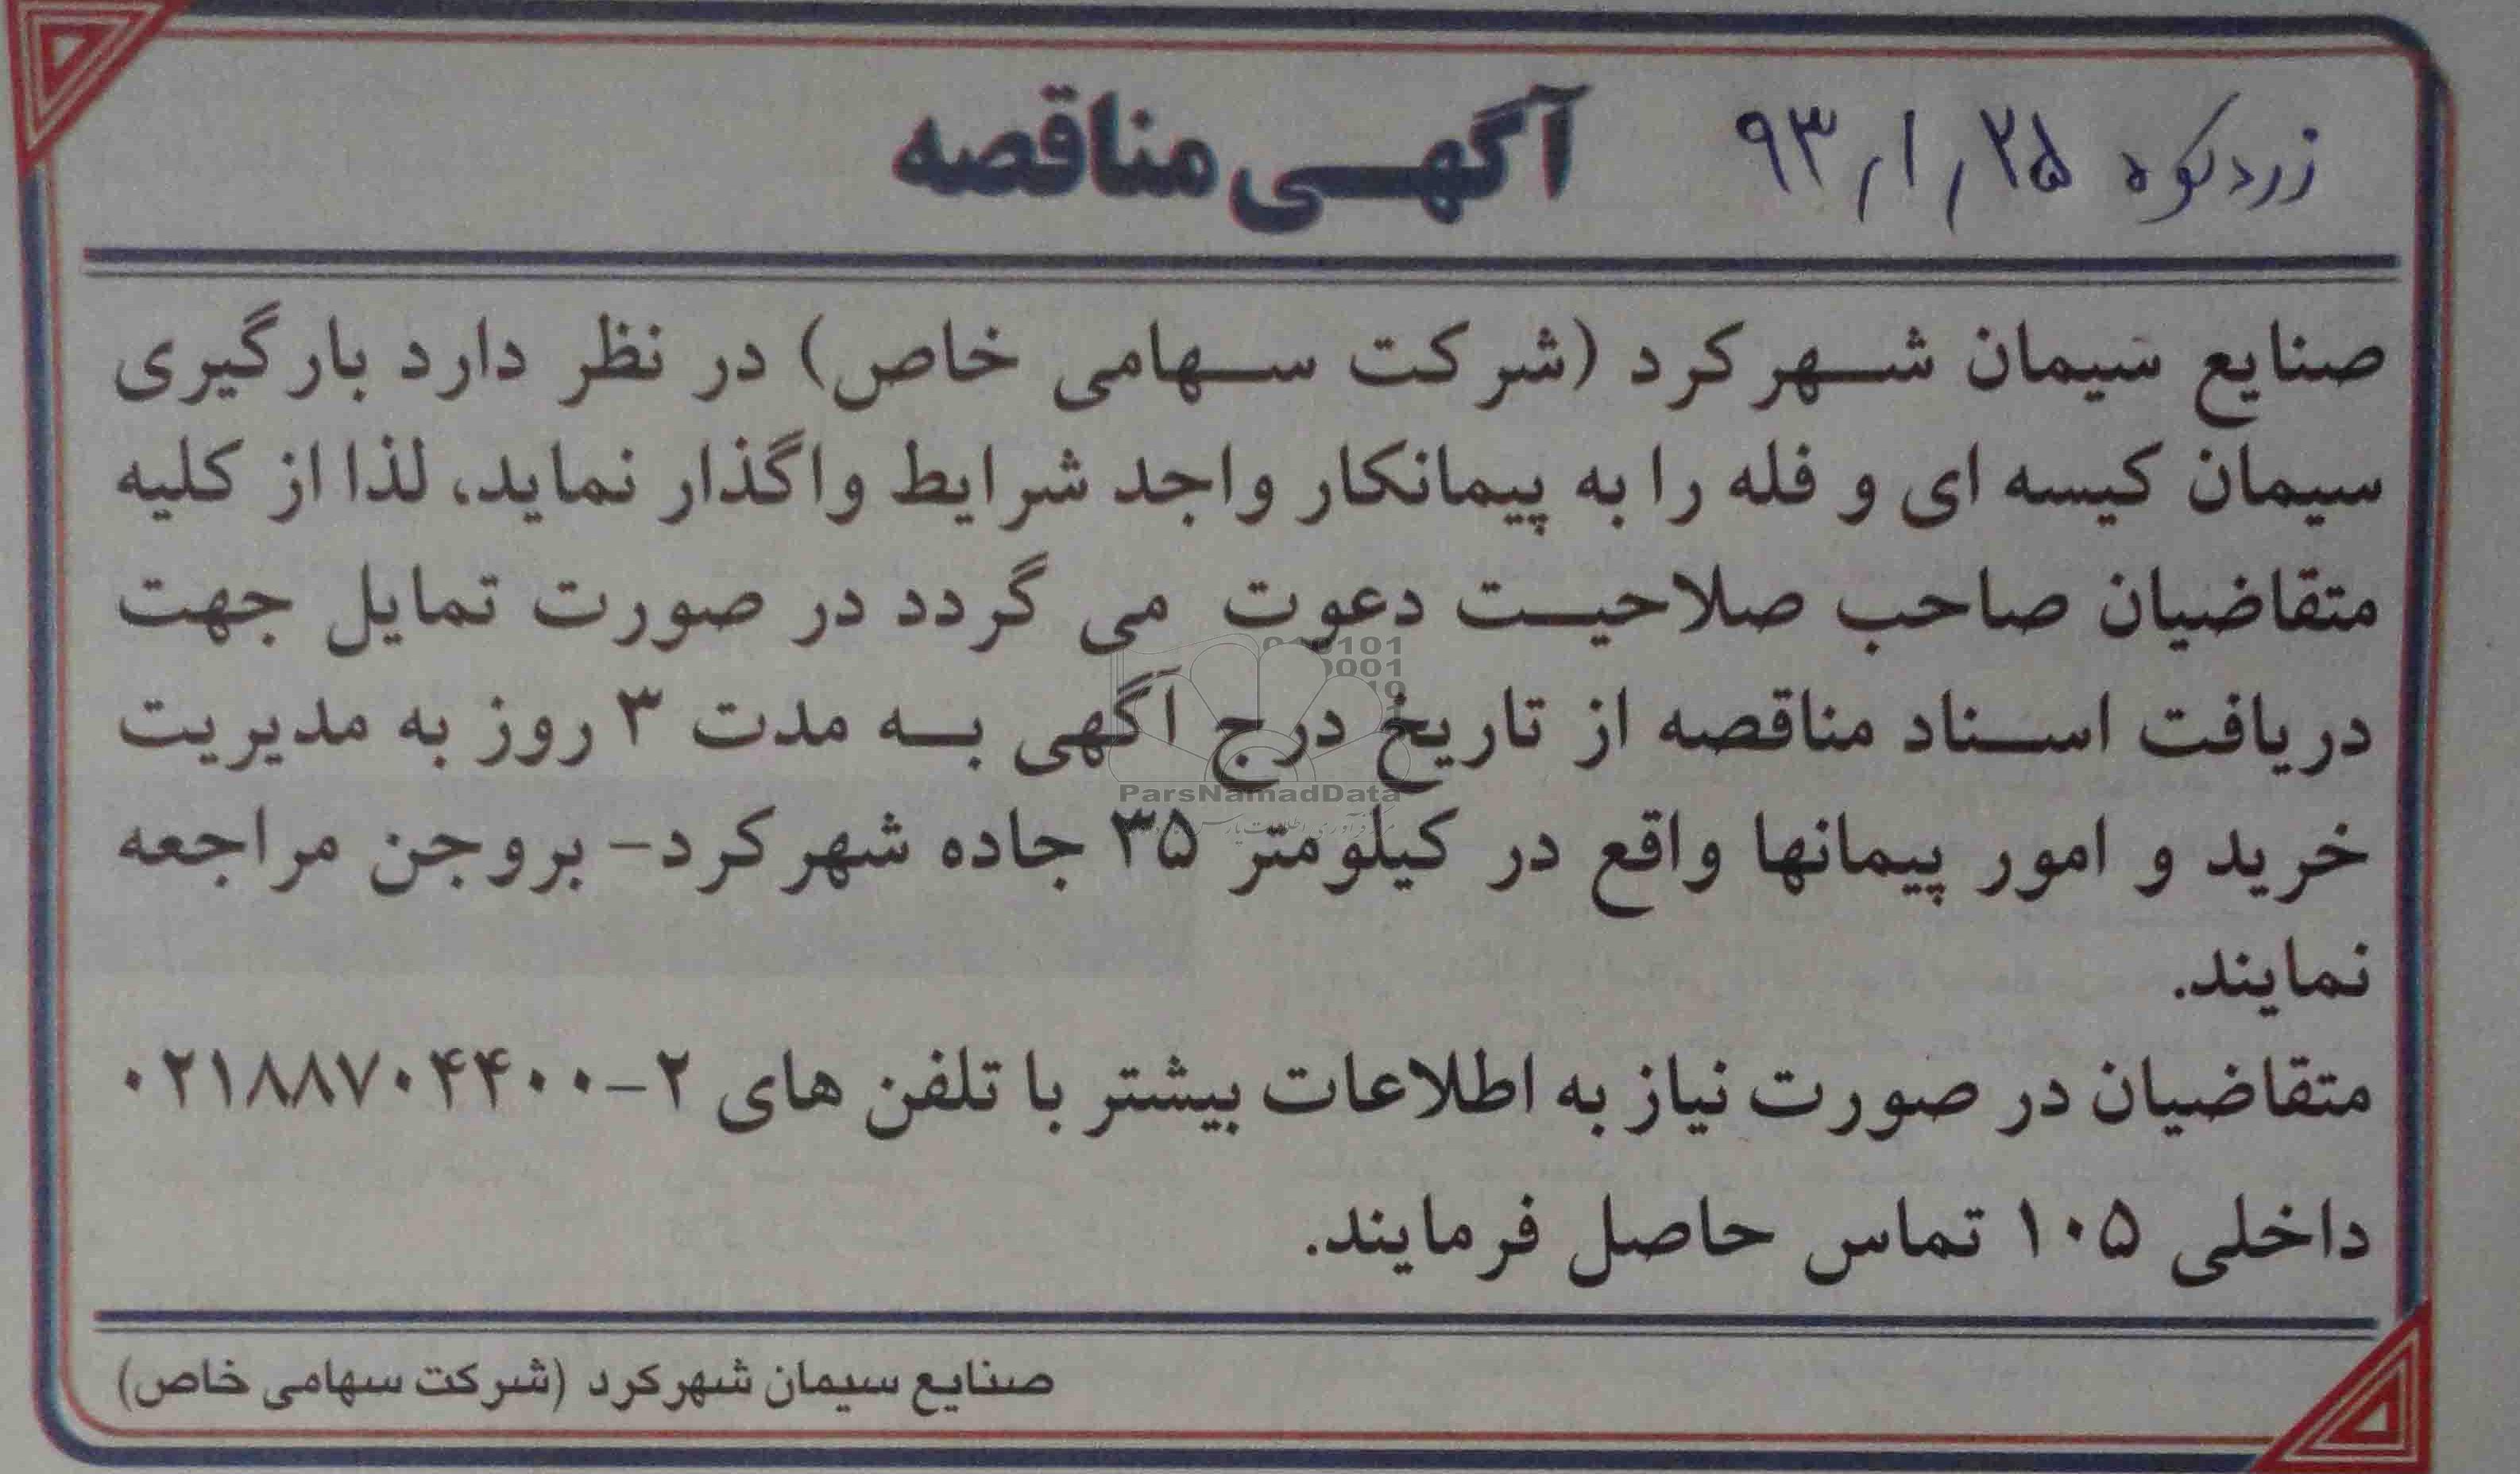 زردکوه ۹۳/۱/۲۵
آگهی مناقصه
صنایع سیمان شهرکرد (شرکت سهامی خاص) در نظر دارد بارگیری
سیمان کیسه ای و فله را به پیمانکار واجد شرایط واگذار نماید، لذا از کلیه
متقاضیان صاحب صلاحیت دعوت می گردد در صورت تمایل جهت
دریافت اسناد مناقصه از تاریخ درج آگهی به مدت ۳ روز به مدیریت
خرید و امور پیمانها واقع در کیلومتر ۳۵ جاده شهرکرد- بروجن مراجعه
نمایند.
متقاضیان در صورت نیاز به اطلاعات بیشتر با تلفن های ۲-۰۲۱۸۸۷۰۴۴۰۰
داخلی ۱۰۵ تماس حاصل فرمایند.
صنایع سیمان شهرکرد (شرکت سهامی خاص)
ParsNamadData